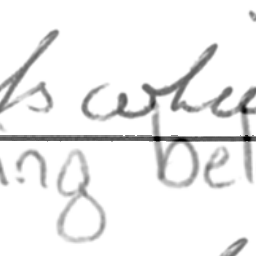 ls whi
ing bel